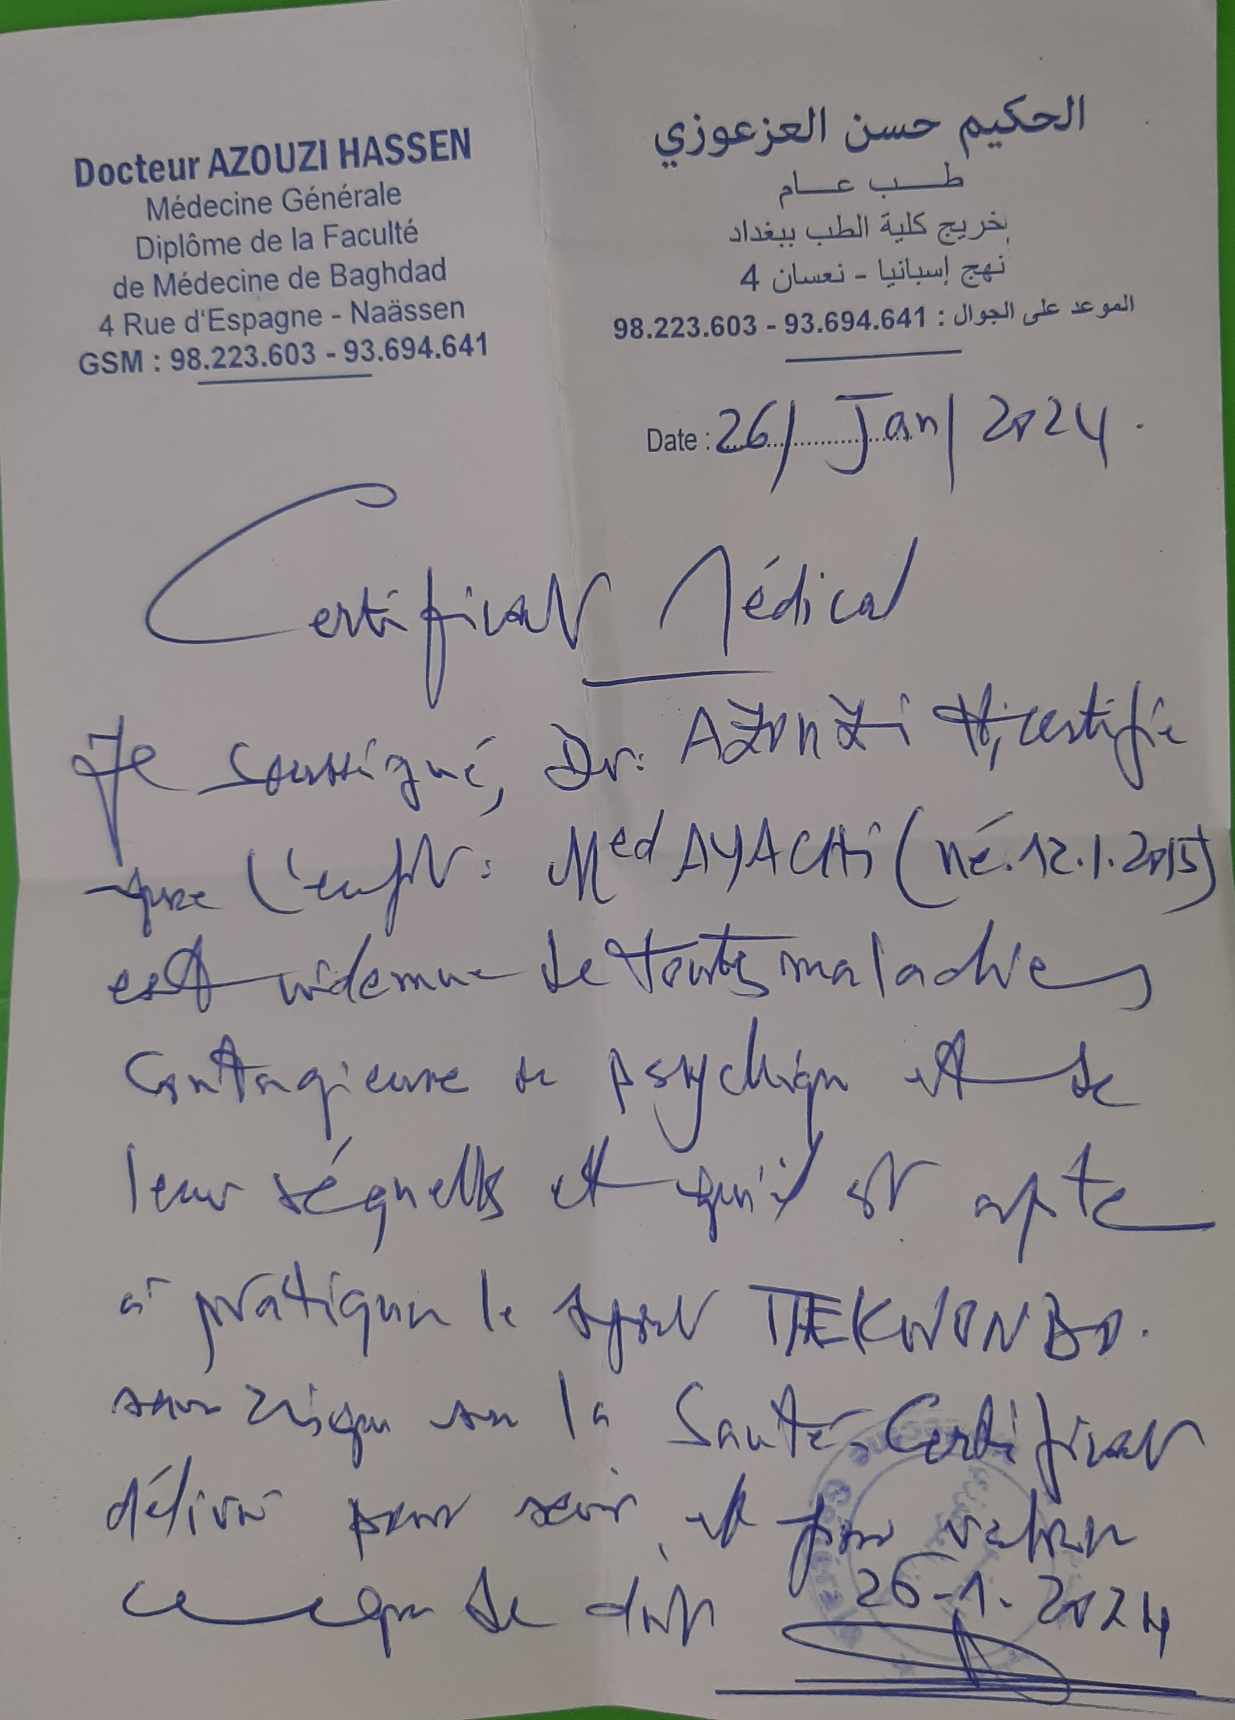 Docteur AZOUZI HASSEN
Médecine Générale
Diplôme de la Faculté
de Médecine de Baghdad
4 Rue d'Espagne - Naässen
GSM : 98.223.603 - 93.694.641
الحكيم حسن العزعوزي
طب عام
خريج كلية الطب ببغداد
نهج إسبانيا - نعسان 4
الموعد على الجوال : 93.694.641 - 98.223.603
Date : 26/ Jan/ 2024.
Certificat Médical
Je soussigné, Dr: AZOUZI H, certifie
que l'enft : Med AYACHI (né.12.1.2015)
est indemne de toutes maladies
contagieuse psychiqu et de
leur séquelles et qu'il est apte
à pratiquer le sport TAEKWONDO.
sans risque sur la Santé. Certificat
délivré pour servir et faire valoir
ce que de droit 26-1-2024
Générale